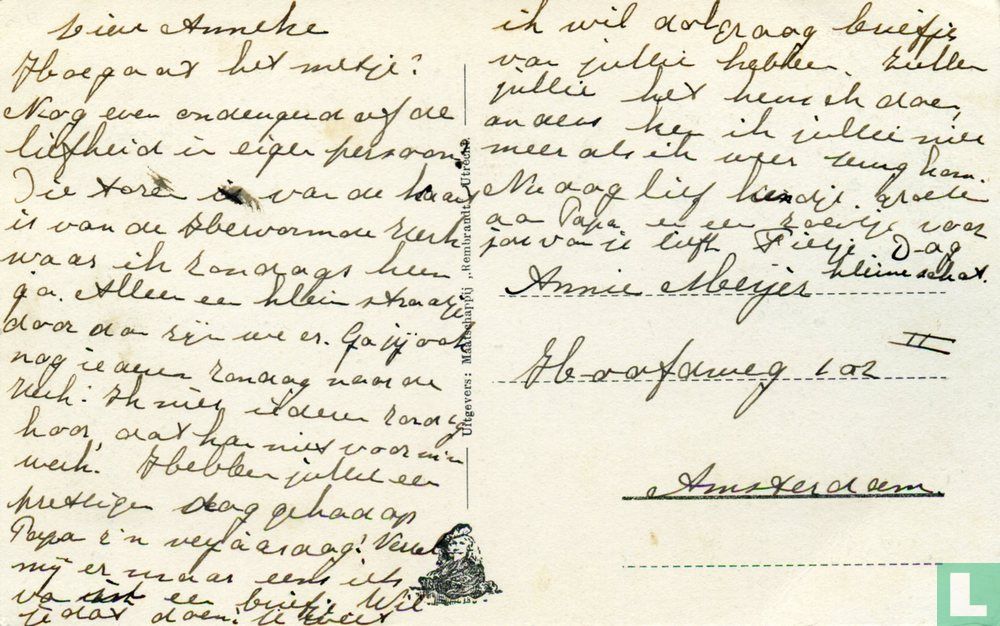 Lieve Anneke
Hoe gaat het meisje?
Nog even ondeugend of de
liefheid in eigen persoon?
Die toren is van de kaart
is van de Hervormde Kerk
waar ik Zondags heen
ga. Alleen een klein straatje
door dan zijn we er. Ga jij ook
nog iederen Zondag naar de
Kerk? Ik niet iederen Zondag
hoor, dat kan niet voor mijn
werk. Hebben jullie een
prettigen dag gehad op
Papa z'n verjaardag? Vertel
mij er maar eens iets
van in een briefje. Wil
je dat doen? Je weet
ik wil dolgraag briefjes
van jullie hebben. Zullen
jullie het heusch doen,
anders ken ik jullie niet
meer als ik weer terug kom.
Nu dag lief kindje, groeten
aan Papa en een zoentje voor
jou van je liefh. Fietje Dag
kleine schat.
Annie Meijer
Hoofdweg 102 II
Amsterdam.
Uitgevers: Maatschappij „Rembrandt", Utrecht.
L